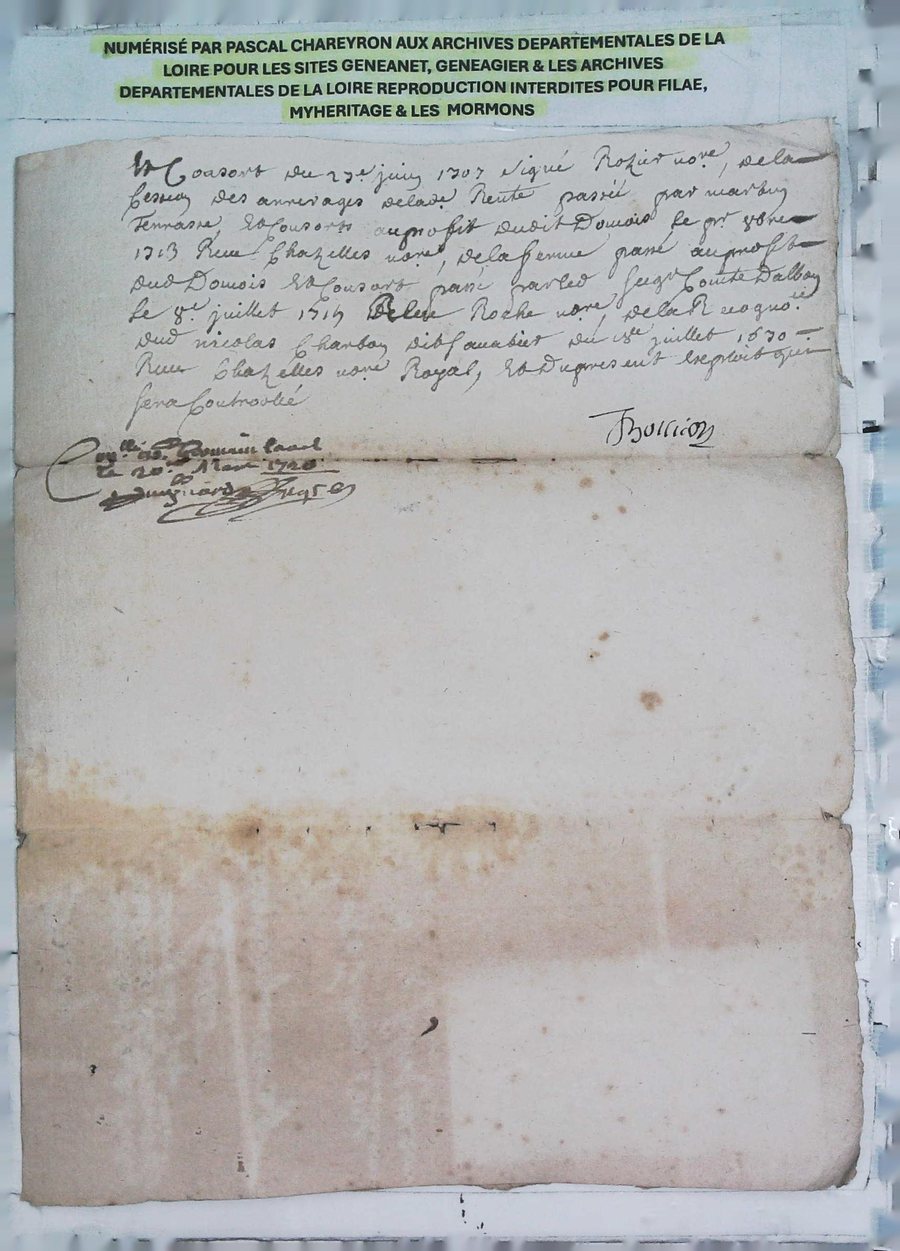 NUMÉRISÉ PAR PASCAL CHAREYRON AUX ARCHIVES DEPARTEMENTALES DE LA
LOIRE POUR LES SITES GENEANET, GENEAGIER & LES ARCHIVES
DEPARTEMENTALES DE LA LOIRE REPRODUCTION INTERDITES POUR FILAE,
MYHERITAGE & LES MORMONS
Et Consort du 27e juin 1707 signé Rozier nore, dela
Cession des arrerages delade Rente passée par martin
Terrasse, Et Consorts auprofit dudit Domois le pr 8bre
1713 Receu Chazelles nore, de la ferme passé auprofit
dud Domois Et Consort passé parled seigr Comte Dalbon
Le 8e juillet 1714 Roche nore, dela Recogno
dud nicolas Charbon dit du juillet 1630
Receu Chazelles nore Royal, Et Dupresent Exploit qui
sera Controollé
JBollion
Conllé St Germain Laval
le 20e 1720